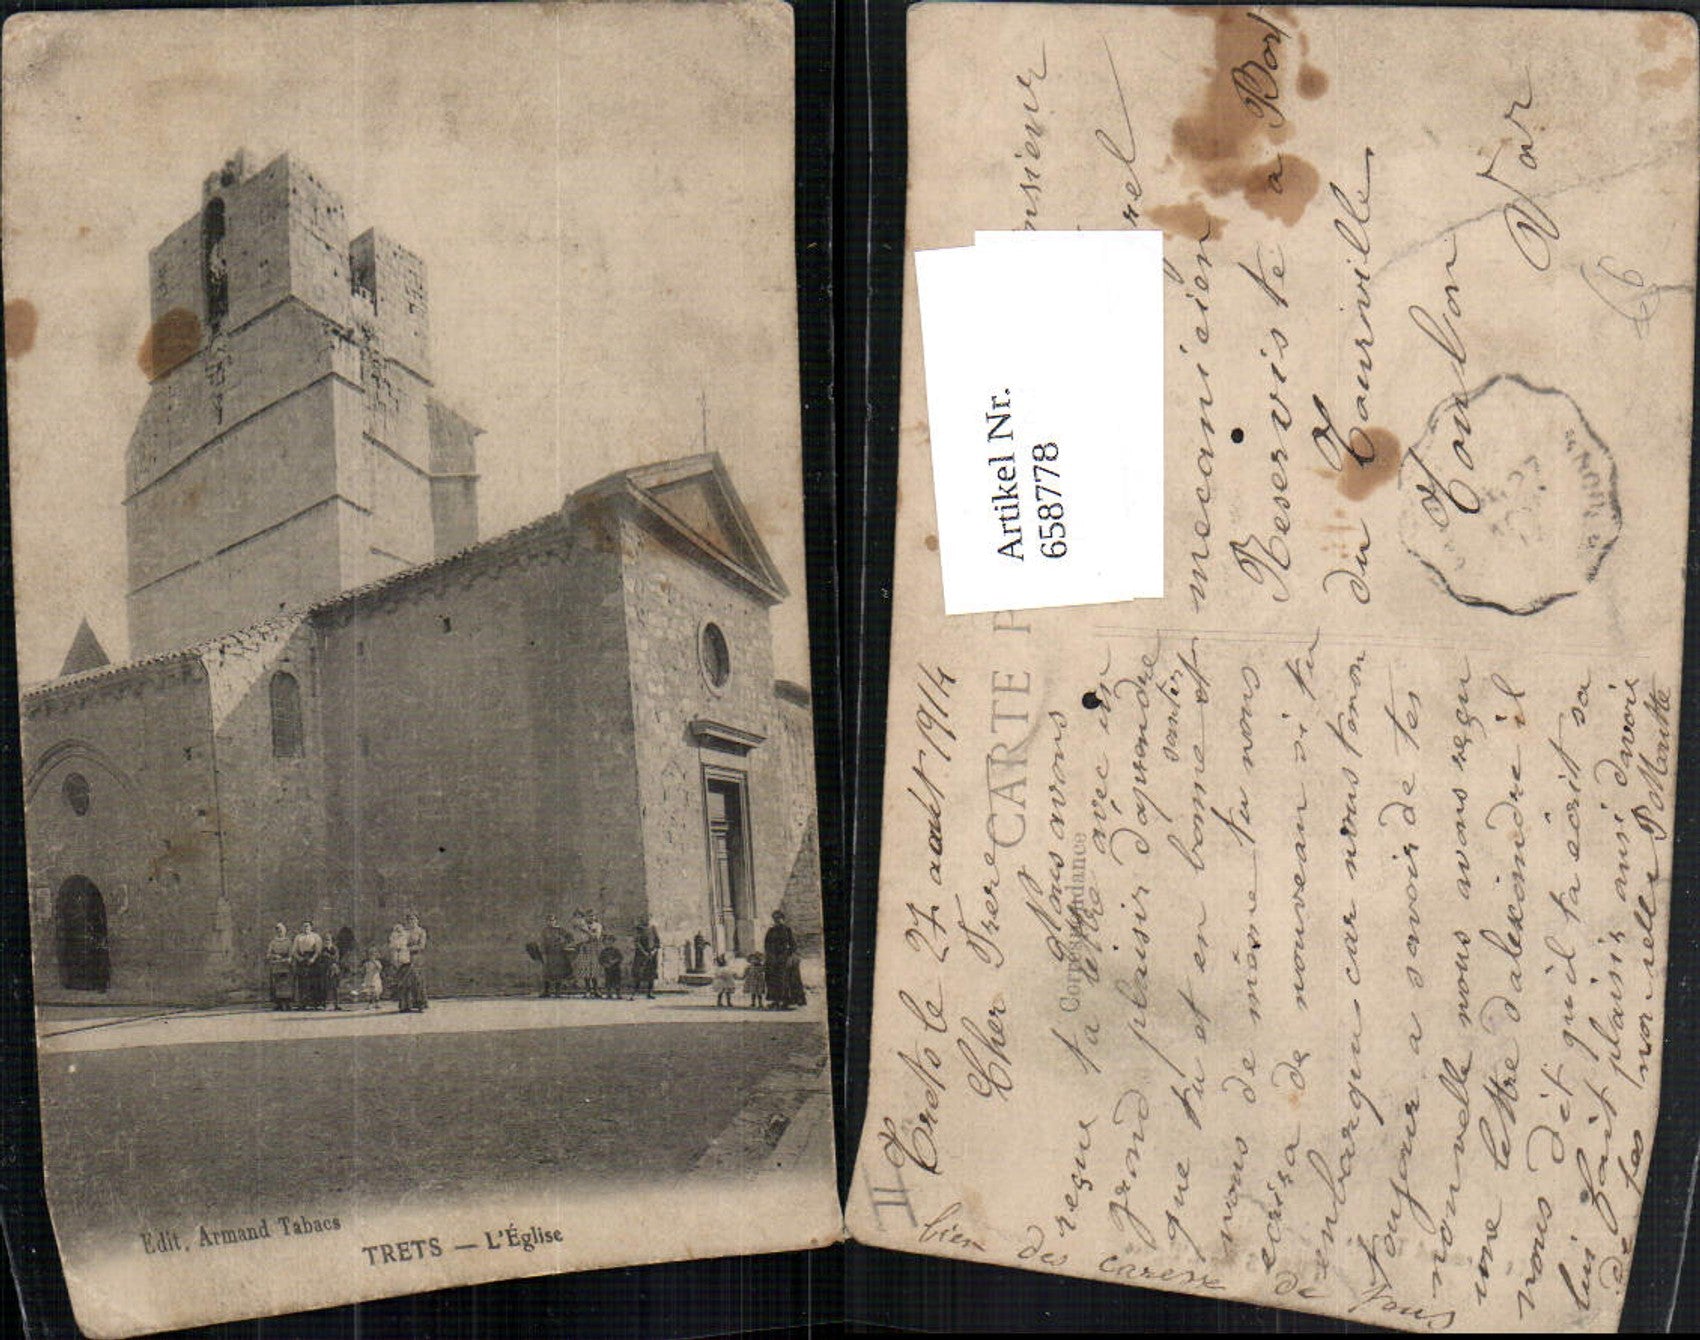 Edit. Armand Tabacs
TRETS — L'Église
Artikel Nr.
658778
CARTE P
Correspondance
Trets le 27 aout 1914
Cher Frere
Nous avons
reçue ta lettre avec un
grand plaisir d'aprendre
que tu et en bonne santer et
nous de même tu nous
ecrira de nouveau si tu
d'enbarque car nous tenon
toujour a savoir de tes
nouvelle nous avons reçu
une lettre d'alexandre il
nous dit qu'il ta ecrit sa
lui fait plaisir ausi d'avoir
de tes nouvelle
bien des caresse
tous
nsieur
rel
mecanicien
Reserviste a Bort
du Tourville
Toulon
Var